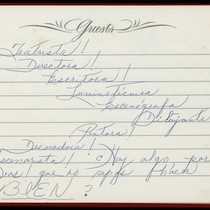 Guests
Teatrista!
Directora!
Escritora!
Luminotécnica
Escenógrafa
Dibujante
Pintora!
Decoradora!
¿Hay algo por
Dios! que no sepas
BIEN?